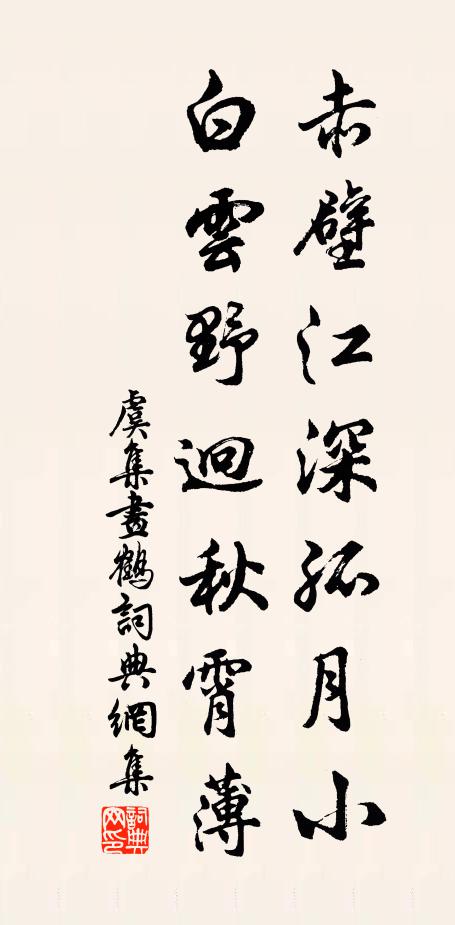 赤壁江深孤月小
白雲野迥秋霄薄
虞集畫鶴詞典網集
詞典網印